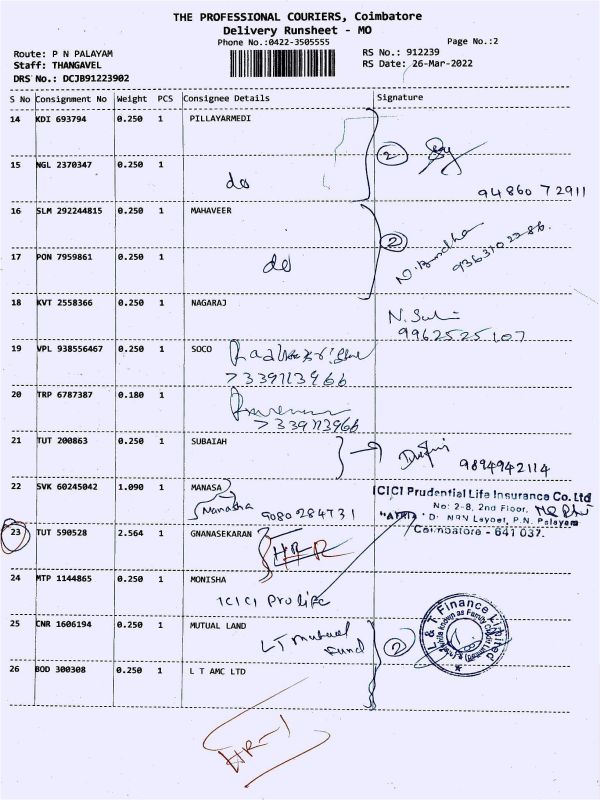 THE PROFESSIONAL COURIERS, Coimbatore
Delivery Runsheet - MO
Phone No.:0422-3505555
Page No.:2
Route: P N PALAYAM
RS No.: 912239
Staff: THANGAVEL
RS Date: 26-Mar-2022
DRS No.: DCJB91223902
S No Consignment No Weight PCS Consignee Details Signature
14 KDI 693794 0.250 1 PILLAYARMEDI
2
15 NGL 2370347 0.250 1
do
94860 72911
16 SLM 292244815 0.250 1 MAHAVEER
2
17 PON 7959861 0.250 1
do
18 KVT 2558366 0.250 1 NAGARAJ
9962525107
19 VPL 938556467 0.250 1 SOCO
7339113966
20 TRP 6787387 0.180 1
7339113966
21 TUT 200863 0.250 1 SUBAIAH
9894942114
22 SVK 60245042 1.090 1 MANASA
Manasha 9080284731
ICICI Prudential Life Insurance Co. Ltd
No: 2-8, 2nd Floor,
Layout, P.N. Palayam
Coimbatore - 641 037.
23 TUT 590528 2.564 1 GNANASEKARAN
24 MTP 1144865 0.250 1 MONISHA
ICICI Prolife
25 CNR 1606194 0.250 1 MUTUAL LAND
LT Mutual
Fund
2
L & T Finance Limited
26 BOD 300308 0.250 1 L T AMC LTD
HR-1